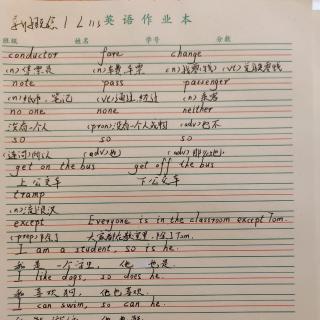 新概念 1 L115 英语作业本
班级 姓名 学号 分数
conductor fare change
(n)售票员 (n)车费,车票
note pass passenger
(n)纸币,笔记 (vt) (n)乘客
no one none neither
没有一个人 (pron)没有一个人或物 (adv)也不
so so so
(连词)所以 (adv)也 (adv)
get on the bus get off the bus
上公交车 下公交车
tramp
(n)流浪汉
except Everyone is in the classroom except Tom.
(prep)除了 大家都在教室里,除了Tom.
I am a student, so is he.
我是一个学生, 他也是.
I like dogs, so does he.
我喜欢狗, 他也喜欢.
I can swim, so can he.